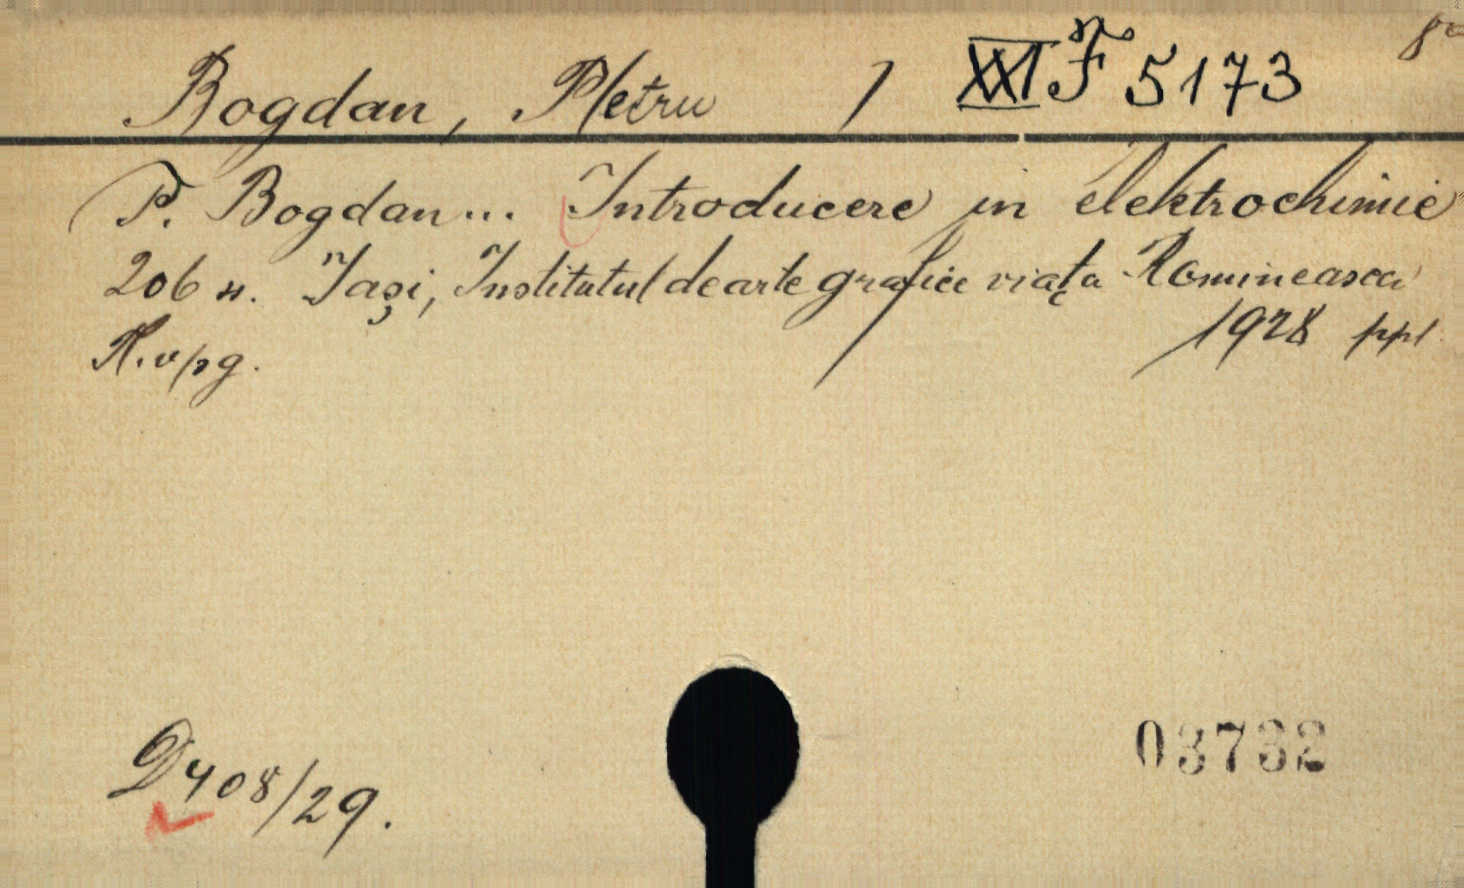 Bogdan, P/etru / XXI F 5173 8°
P. Bogdan... Introducere in elektrochimie
206 н. Iași, Institutul de arte grafice viața Romineasca
1928 ppl.
R. v/pg.
D 408/29.
03732